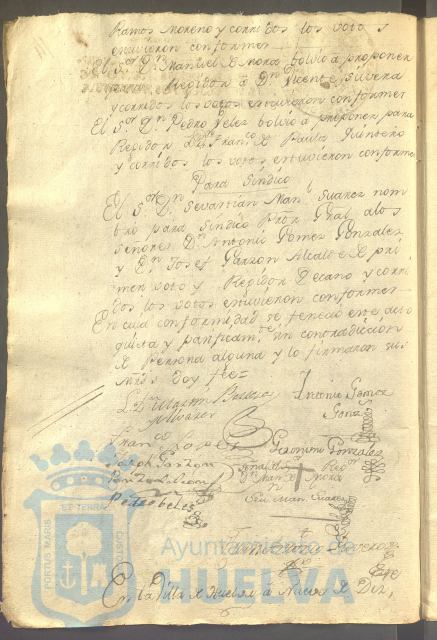 Ramos Moreno y corridos los votos
estuvieron conformes
El S.or D.n Manuel de Mora bolvio a proponer
para Regidor a D.n Vicente Silvera
y corridos los votos estuvieron conformes
El S.or D.n Pedro Velez bolvio a proponer para
Regidor D.n Fran.co de Paula Quintero
y corridos los votos, estuvieron conformes
Para Sindico
El S.or D.n Sevastian Man.l Suarez nom
bro para Sindico Pror Gral, a los
Señores D. Antonio Gomez Gonzalez
y D.n Josef Garzon Alcalde de pri
mer voto y Regidor Decano y corri
dos los votos estuvieron conformes
En cuia conformidad se fenecio este acto
quieta y pacificam.te sin contradiccion
de Persona alguna y lo firmaron sus
Mrds Doy fee=
Antonio Gomez
Gonz
Fran.co Lopez
Geronimo Gonzalez
Joseph Garzon
Señal del Reg.or
D.n Man.l de Mora
Sev. Man. Suarez
Pedro Velez
PORTUS MARIS
ET TERRAE
CUSTODIA
Ayuntamiento de
HUELVA
En la Villa de Huelva a Nueve de Diz,